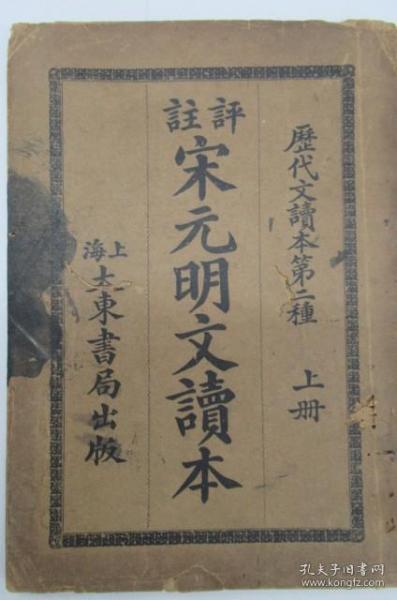 歷代文讀本第二種 上册
評註
宋元明文讀本
上海
大東書局出版
孔夫子旧书网
www.kongfz.com